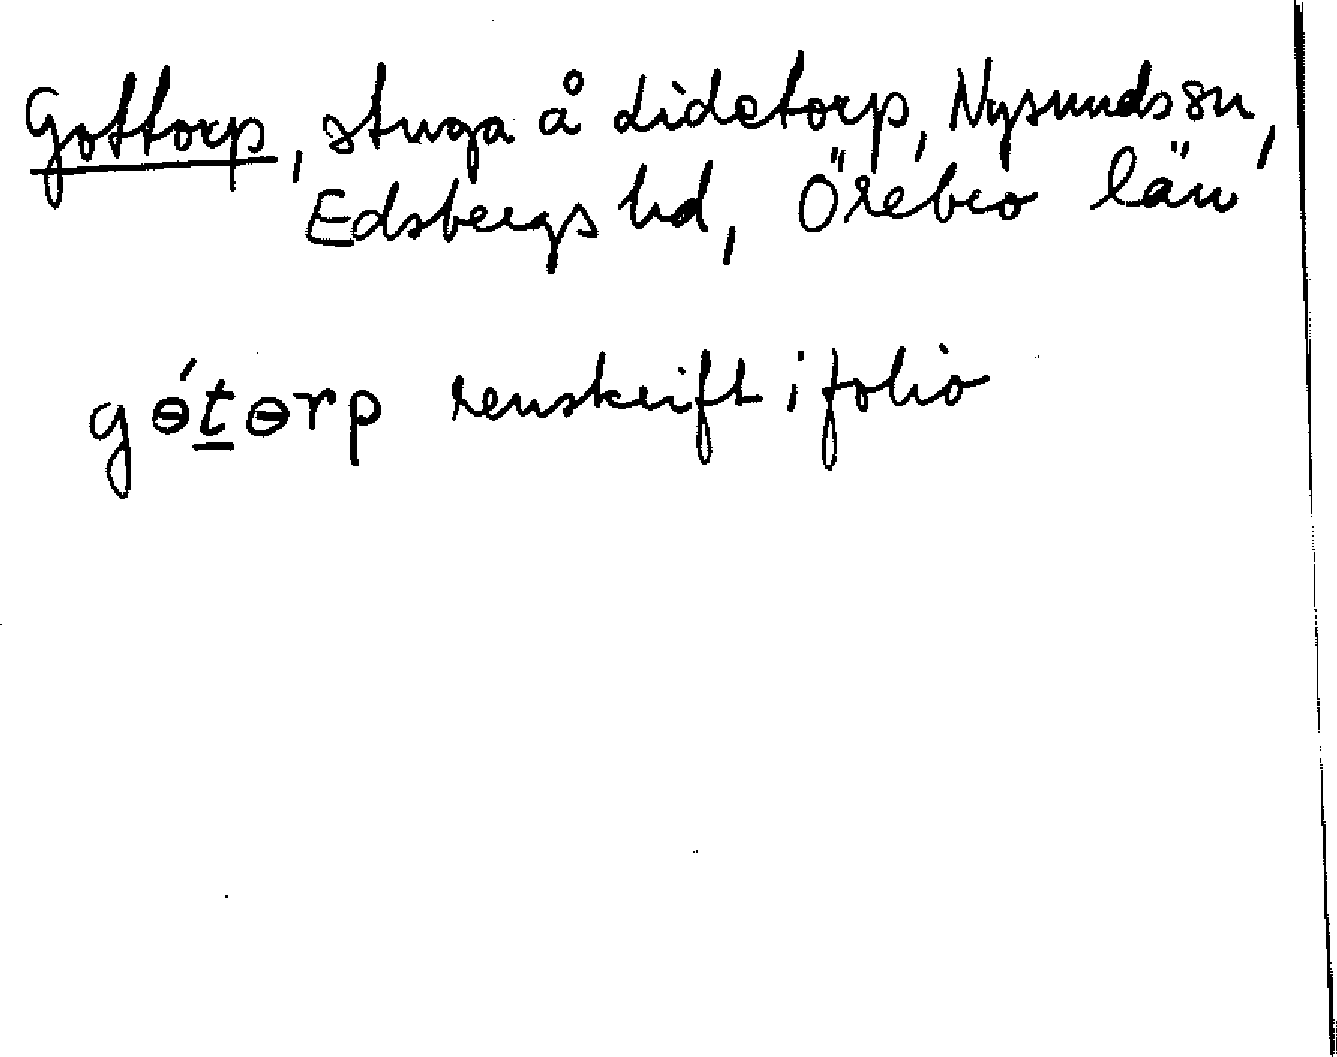 Gottorp, stuga å Lidetorp, Nysunds sn,
Edsbergs hd, Örebro län
gɵ́tɵrp renskrift i folio